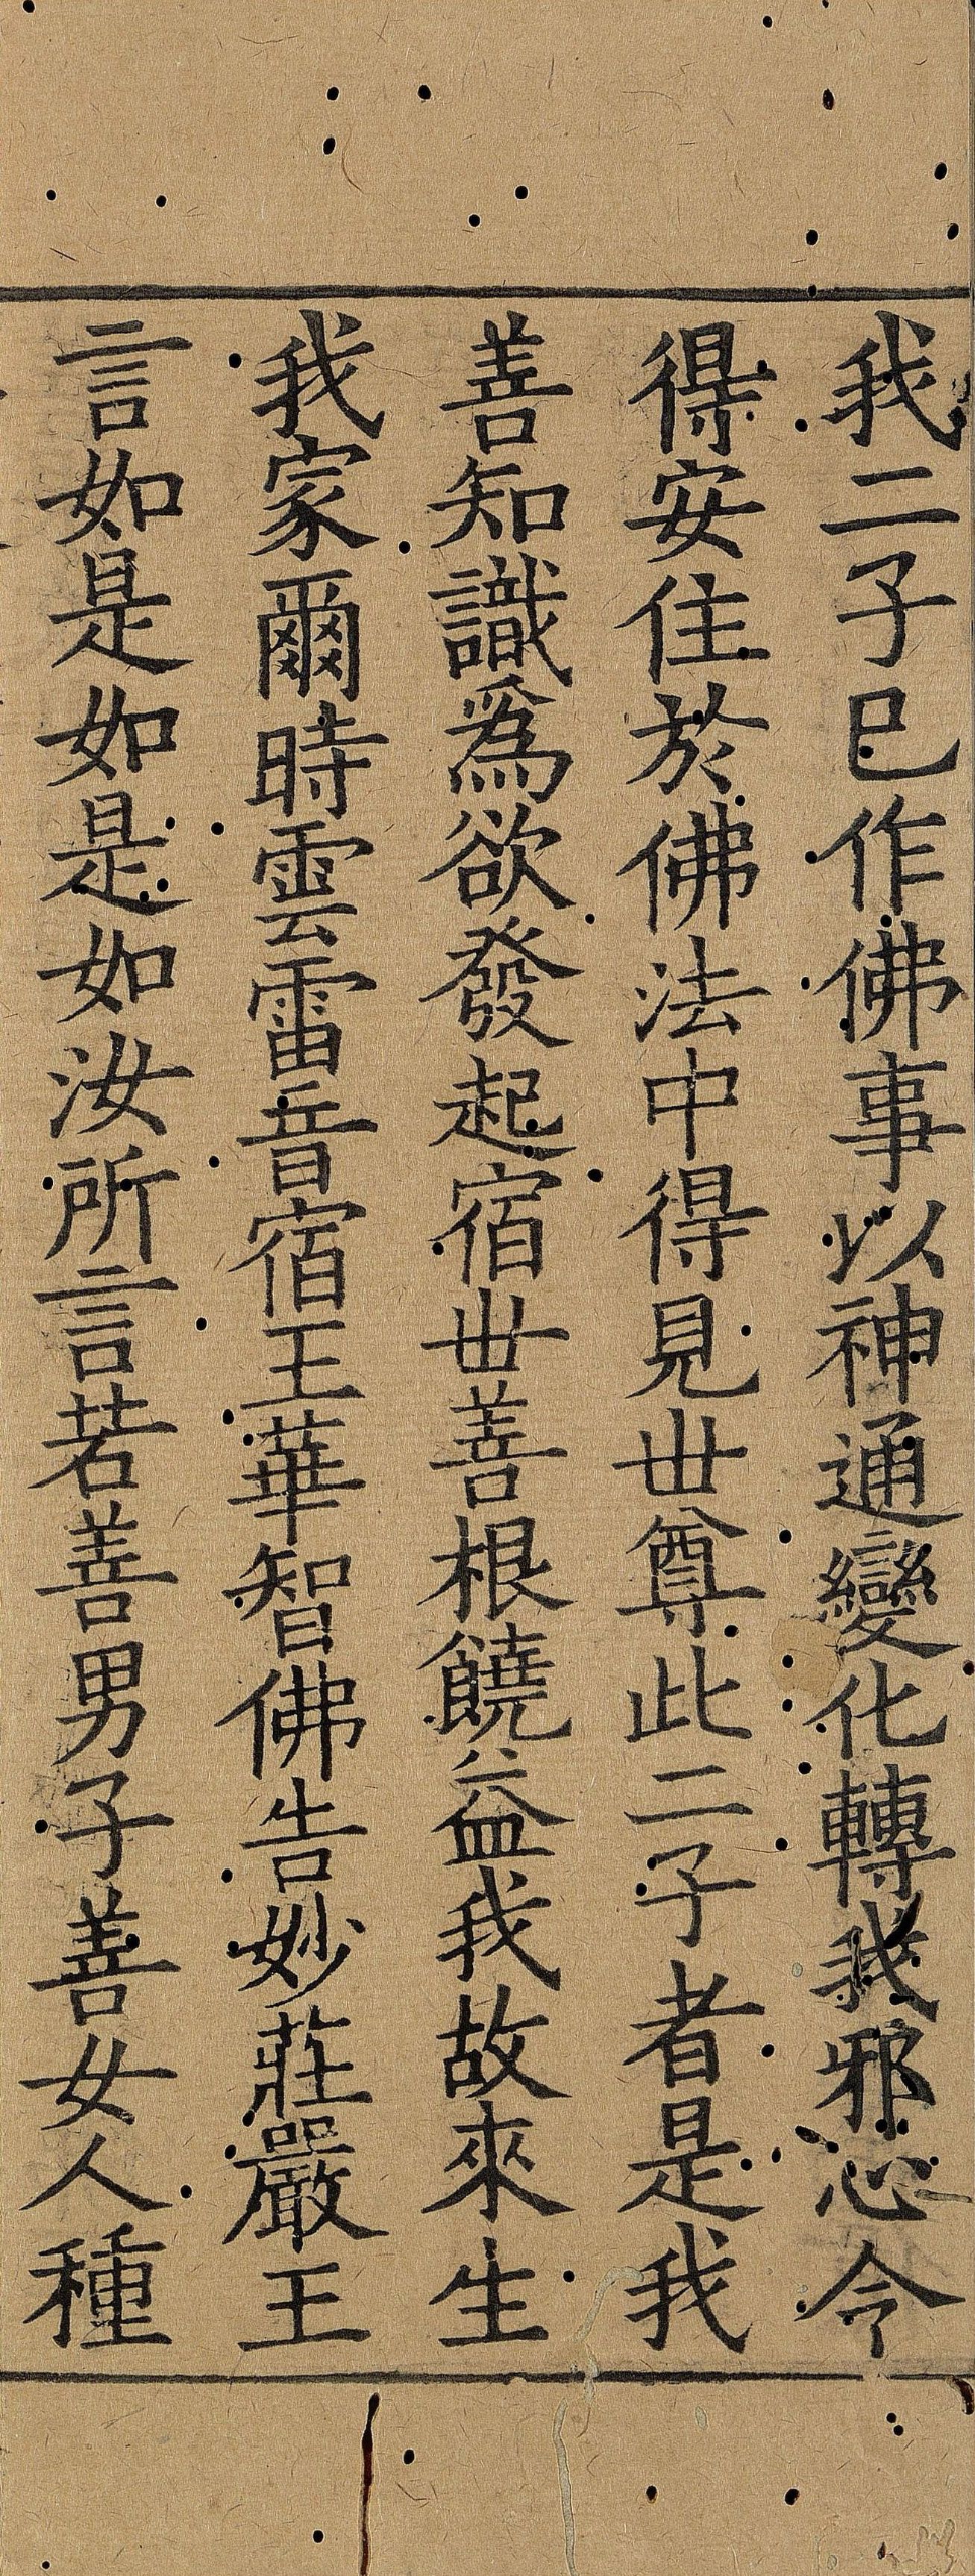 我二子已作佛事以神通變化轉我邪心令
得安住於佛法中得見世尊此二子者是我
善知識爲欲發起宿世善根饒益我故來生
我家爾時雲雷音宿王華智佛告妙莊嚴王
言如是如是如汝所言若善男子善女人種